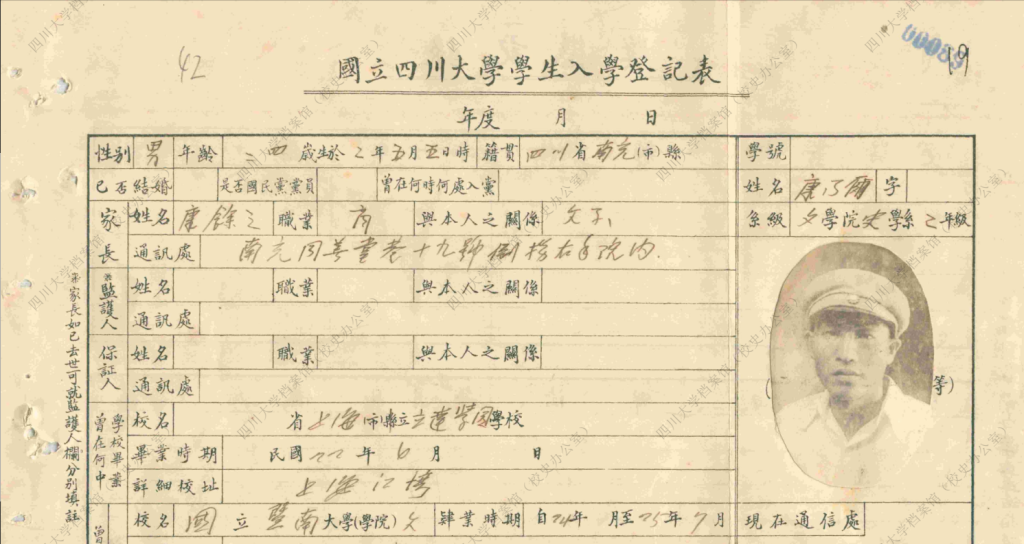 42
00059
19
國立四川大學學生入學登記表
年度 月 日
性別 男 年齡 歲生於 年五月五日時 籍贯 四川省南充(市)縣 學號
已否結婚 是否國民黨黨員 曾在何時何處入黨 姓名 康乃爾 字
家長 姓名 康餘之 職業 商 與本人之關係 父子 系級 文學院史學系二年級
通訊處 南充 十九號 院內
監護人 姓名 職業 與本人之關係
通訊處
保証人 姓名 職業 與本人之關係
通訊處
等)
曾在何中學校畢業 校名 省上海(市)縣立立達學園學校
畢業時期 民國22年6月 日
詳細校址 上海江灣
曾 校名 國立暨南大學(學院)文 肄業時期 自24年 月至25年7月 現在通信處
家長如已去世可就監護人欄分別填註
四川大学档案馆(校史办公室)